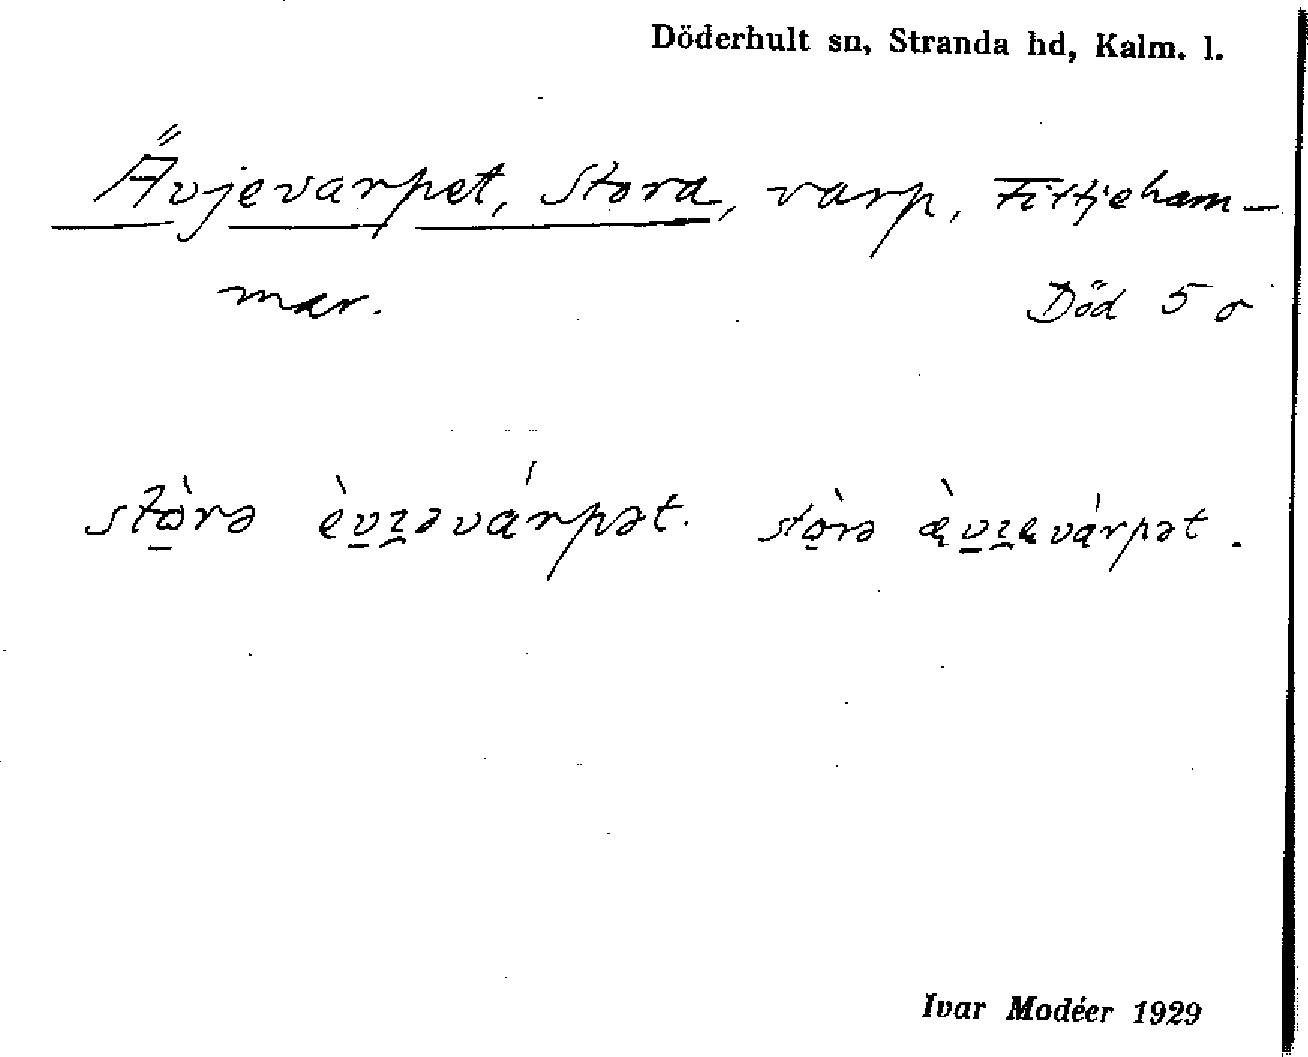 Döderhult sn, Stranda hd, Kalm. l.
Ävjevarpet, Stora, varp, Fittjeham-
mar.
Död 5 o
stò̱rə èv̱ɀ̱əvárpət. stò̱rə æ̀v̱ɀ̱əvárpət.
Ivar Modéer 1929